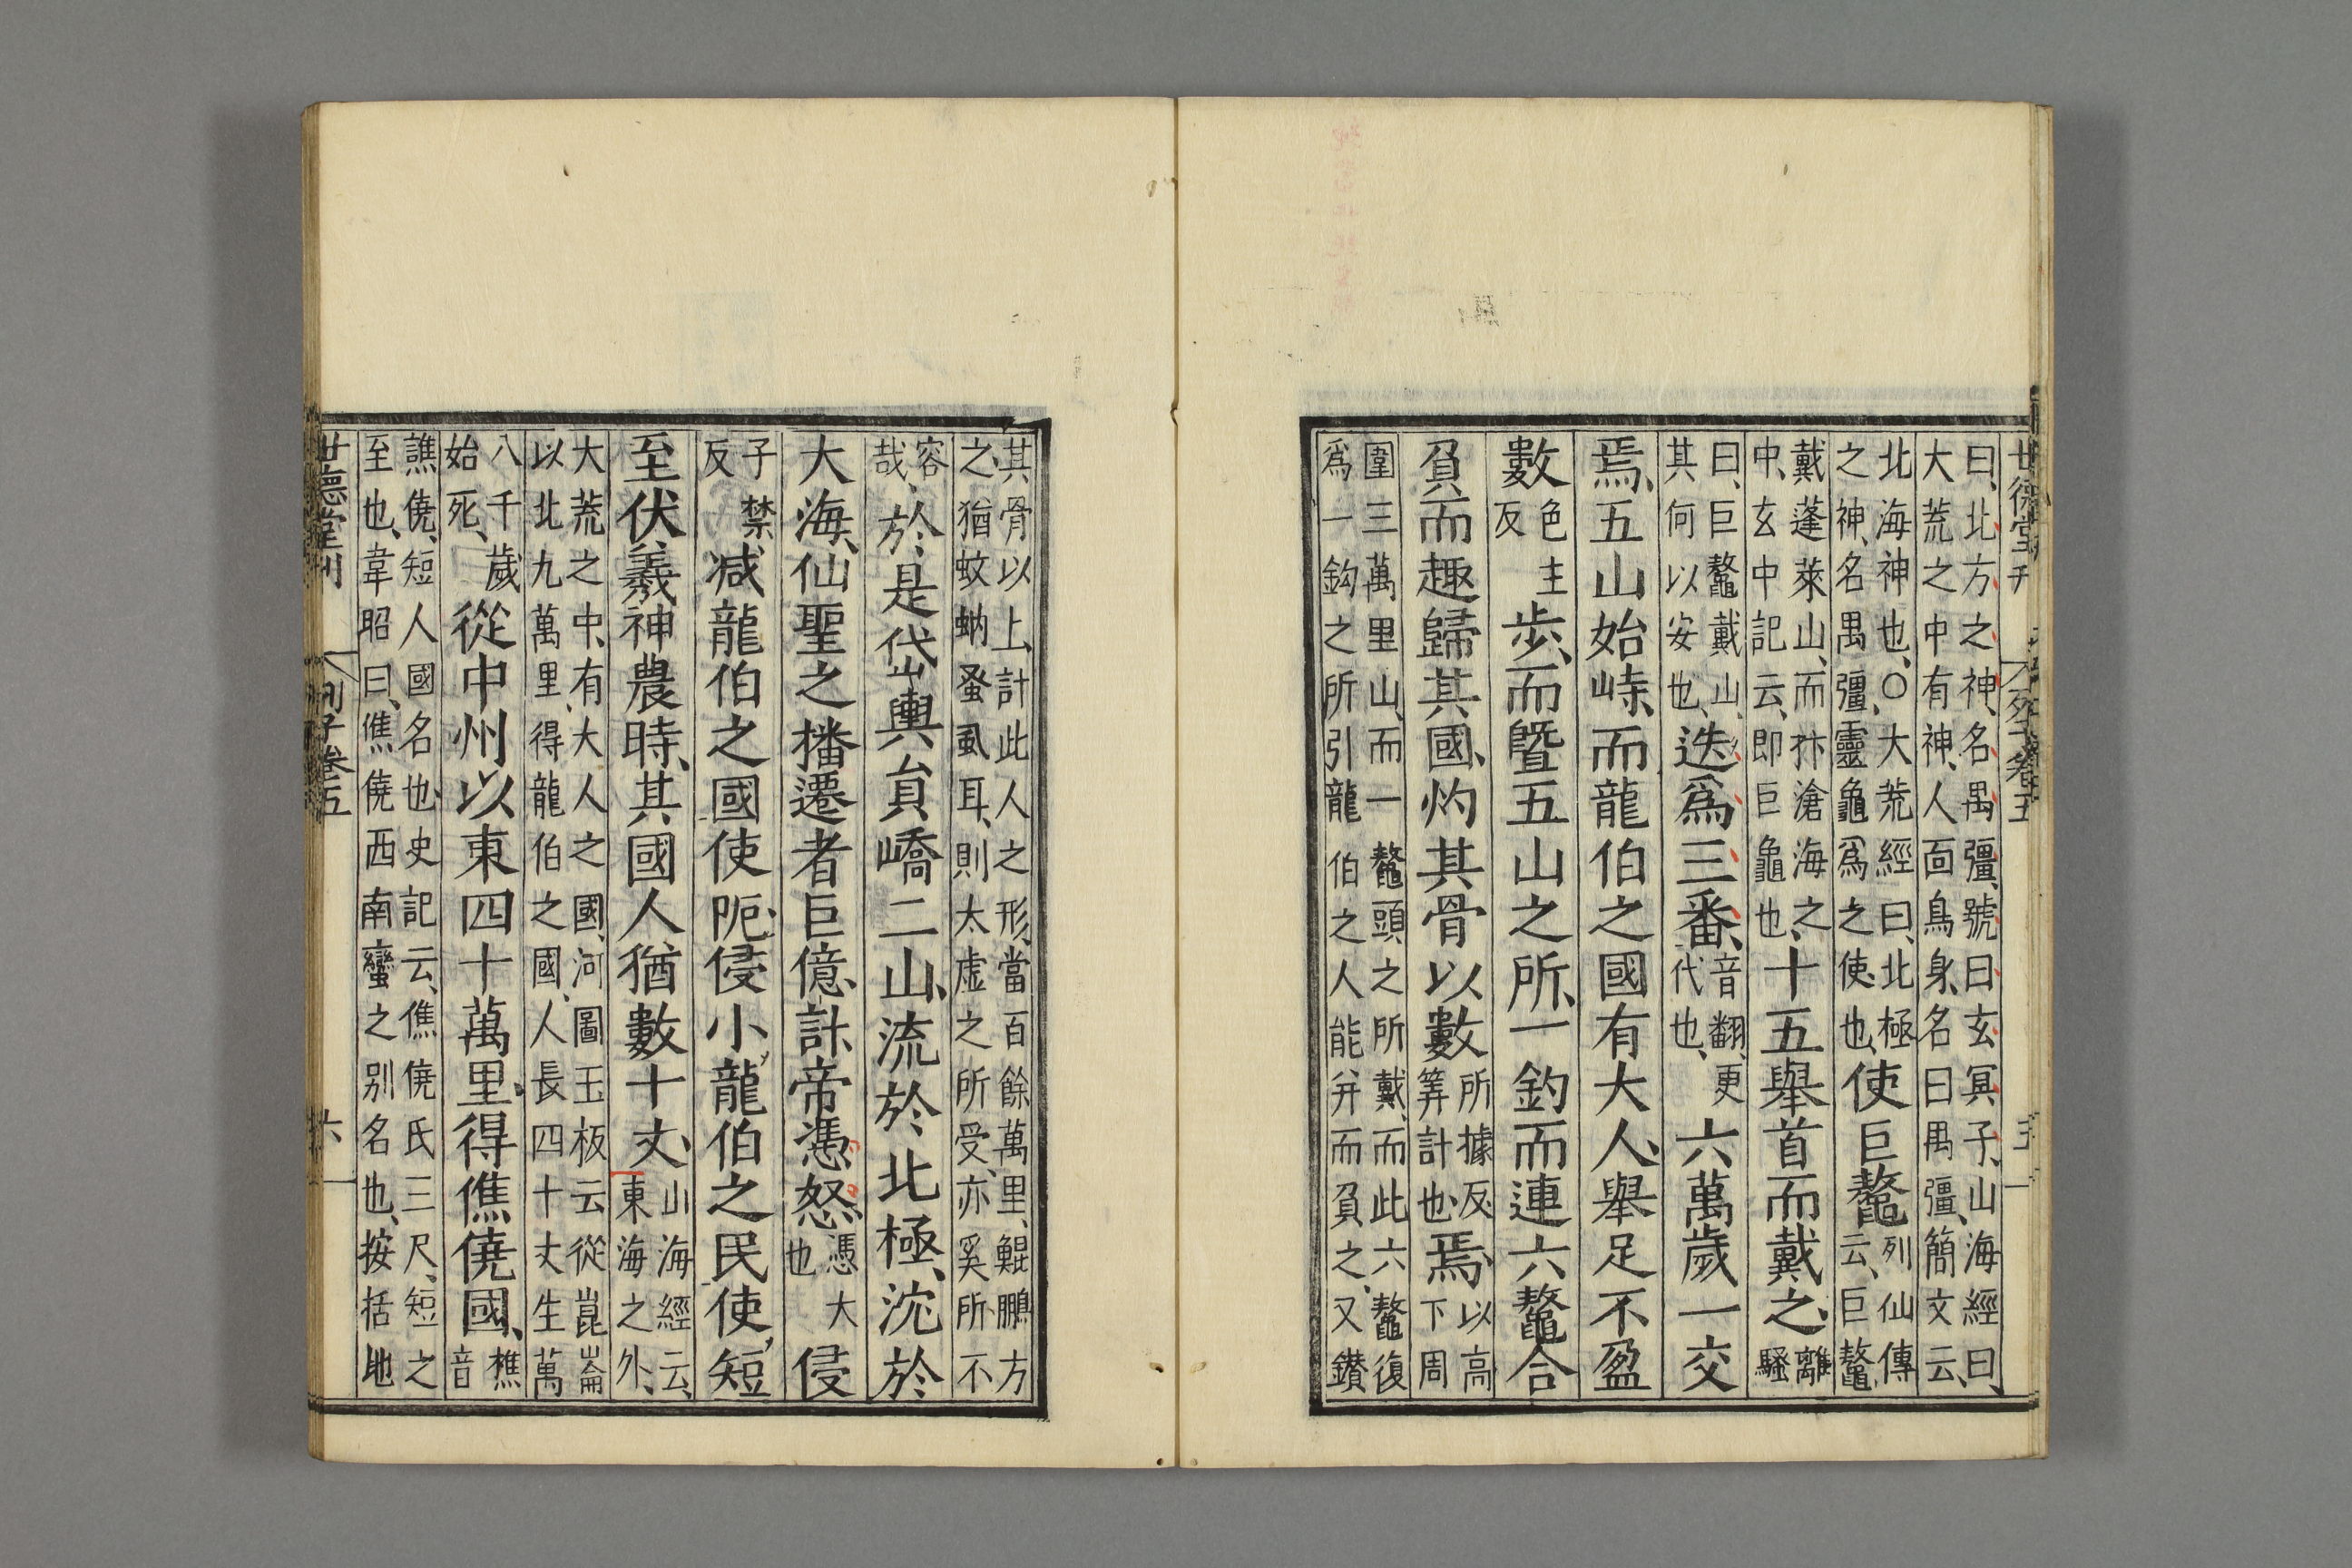 世德堂刊
列子卷五
五
曰北方之神名禺彊號曰玄冥子山海經曰
大荒之中有神人面鳥身名曰禺彊簡文云
北海神也〇大荒經曰北極
之神名禺彊靈龜爲之使也使巨鼇列仙傳
云巨鼇
戴蓬萊山而抃滄海之
中玄中記云即巨龜也十五舉首而戴之離
騷
曰巨鼇戴山
其何以安也迭爲三番音翻更
代也六萬歲一交
焉五山始峙而龍伯之國有大人舉足不盈
數色主
反步而曁五山之所一釣而連六鼇合
負而趣歸其國灼其骨以數所據反
筭計也焉以高
下周
圍三萬里山而一鼇頭之所戴而此六鼇復
爲一鈎之所引龍伯之人能并而負之又鑽
其骨以上計此人之形當百餘萬里鯤鵬方
之猶蚊蚋蚤虱耳則太虛之所受亦奚所不
容
哉於是岱輿員嶠二山流於北極沈於
大海仙聖之播遷者巨億計帝憑怒憑大
也侵
子禁
反減龍伯之國使阨侵小龍伯之民使短
至伏羲神農時其國人猶數十丈山海經云
東海之外
大荒之中有大人之國河圖玉板云從崑崙
以北九萬里得龍伯之國人長四十丈生萬
八千歲
始死從中州以東四十萬里得僬僥國樵
音
譙僥短人國名也史記云僬僥氏三尺短之
至也韋昭曰僬僥西南蠻之别名也按括地
世德堂刊
列子卷五
六